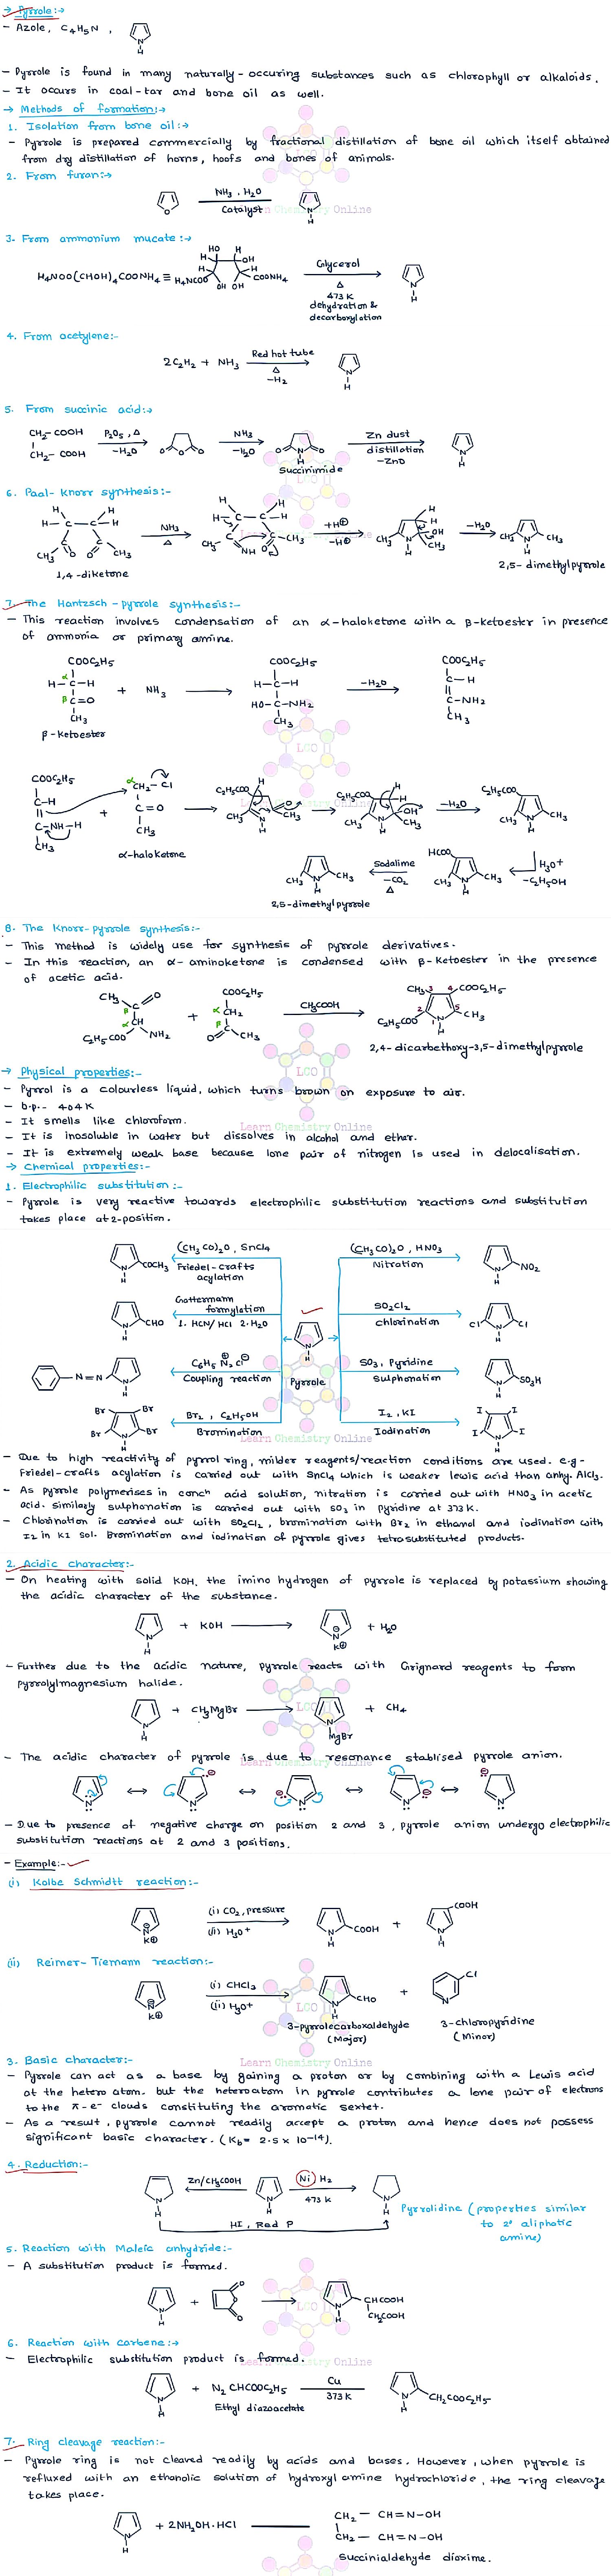 → Pyrrole:→
- Azole, C4H5N,
N
H
- Pyrrole is found in many naturally-occuring substances such as chlorophyll or alkaloids.
- It occurs in coal-tar and bone oil as well.
→ Methods of formation:→
1. Isolation from bone oil:→
- Pyrrole is prepared commercially by fractional distillation of bone oil which itself obtained
from dry distillation of horns, hoofs and bones of animals.
2. From furan:→
O
NH3, H2O
Catalyst
N
H
3. From ammonium mucate:→
H4NOO(CHOH)4COONH4 ≡ H4NCOO
HO H
H OH
H H
COONH4
OH OH
Glycerol
Δ
473 K
dehydration &
decarboxylation
N
H
4. From acetylene:-
2C2H2 + NH3
Red hot tube
Δ
-H2
N
H
5. From succinic acid:→
CH2-COOH
CH2-COOH
P2O5, Δ
-H2O
O O O
NH3
-H2O
O N O
H
Succinimide
Zn dust
distillation
-ZnO
N
H
6. Paal-Knorr synthesis:-
H H
H-C-C-H
C C
CH3 O O CH3
1,4-diketone
NH3
Δ
H H
H-C-C-H
C C
CH3 NH O CH3
+H⊕
-H⊕
H
H
OH
CH3 N CH3
H
-H2O
CH3 N CH3
H
2,5-dimethylpyrrole
7. The Hantzsch-pyrrole synthesis:-
- This reaction involves condensation of an α-haloketone with a β-ketoester in presence
of ammonia or primary amine.
COOC2H5
α
H-C-H
β C=O
CH3
β-ketoester
+ NH3
COOC2H5
H-C-H
HO-C-NH2
CH3
-H2O
COOC2H5
C-H
C-NH2
CH3
COOC2H5
C-H
C-NH-H
CH3
+
α
CH2-Cl
C=O
CH3
α-haloketone
C2H5COO H
CH3 N O CH3
H
C2H5COO H
H
OH
CH3 N CH3
H
-H2O
C2H5COO
CH3 N CH3
H
H3O+
-C2H5OH
HCOO
CH3 N CH3
H
Sodalime
-CO2
Δ
CH3 N CH3
H
2,5-dimethylpyrrole
8. The Knorr-pyrrole synthesis:-
- This method is widely use for synthesis of pyrrole derivatives.
- In this reaction, an α-aminoketone is condensed with β-Ketoester in the presence
of acetic acid.
CH3 O
C
β
α CH
C2H5COO NH2
+
COOC2H5
α CH2
β C
O CH3
CH3COOH
CH3 3 4 COOC2H5
C2H5COO 2 5 CH3
N
H
2,4-dicarbethoxy-3,5-dimethylpyrrole
→ Physical properties:-
- Pyrrol is a colourless liquid, which turns brown on exposure to air.
- b.p.- 404 K
- It smells like chloroform.
- It is insoluble in water but dissolves in alcohol and ether.
- It is extremely weak base because lone pair of nitrogen is used in delocalisation.
→ Chemical properties:-
1. Electrophilic substitution:-
- Pyrrole is very reactive towards electrophilic substitution reactions and substitution
takes place at 2-position.
N COCH3
H
(CH3CO)2O, SnCl4
Friedel-Crafts
acylation
(CH3CO)2O, HNO3
Nitration
N NO2
H
N CHO
H
Gattermann
formylation
1. HCN/HCl 2. H2O
SO2Cl2
chlorination
Cl N Cl
H
N=N N
H
C6H5N2⊕Cl⊖
Coupling reaction
N
H
Pyrrole
SO3, Pyridine
Sulphonation
N SO3H
H
Br Br
Br N Br
H
Br2, C2H5OH
Bromination
I2, KI
Iodination
I I
I N I
H
- Due to high reactivity of pyrrol ring, milder reagents/reaction conditions are used. e.g-
Friedel-crafts acylation is carried out with SnCl4 which is weaker lewis acid than anhy. AlCl3.
- As pyrrole polymerises in concn acid solution, nitration is carried out with HNO3 in acetic
acid. Similarly sulphonation is carried out with SO3 in pyridine at 373K.
- Chlorination is carried out with SO2Cl2, bromination with Br2 in ethanol and iodination with
I2 in KI sol. Bromination and iodination of pyrrole gives tetrasubstituted products.
2. Acidic character:-
- On heating with solid KOH, the imino hydrogen of pyrrole is replaced by potassium showing
the acidic character of the substance.
N
H
+ KOH
N
K⊕
+ H2O
- Further due to the acidic nature, pyrrole reacts with Grignard reagents to form
pyrrolylmagnesium halide.
N
H
+ CH3MgBr
N
MgBr
+ CH4
- The acidic character of pyrrole is due to resonance stablised pyrrole anion.
N N N N N
- Due to presence of negative charge on position 2 and 3, pyrrole anion undergo electrophilic
substitution reactions at 2 and 3 positions.
- Example:-
(i) Kolbe Schmidtt reaction:-
N
K⊕
(i) CO2, pressure
(ii) H3O+
N COOH
H
+
COOH
N
H
(ii) Reimer-Tiemann reaction:-
N
K⊕
(i) CHCl3
(ii) H3O+
N CHO
H
3-pyrrolecarboxaldehyde
(Major)
+
Cl
N
3-chloropyridine
(Minor)
3. Basic character:-
- Pyrrole can act as a base by gaining a proton or by combining with a Lewis acid
at the hetero atom. but the heteroatom in pyrrole contributes a lone pair of electrons
to the π-e- clouds constituting the aromatic sextet.
- As a result, pyrrole cannot readily accept a proton and hence does not possess
significant basic character. (Kb= 2.5 x 10-14).
4. Reduction:-
N
H
Zn/CH3COOH
N
H
Ni H2
473 K
N
H
HI, Red P
Pyrrolidine (properties similar
to 2° aliphatic
amine)
5. Reaction with Maleic anhydride:-
- A substitution product is formed.
N
H
+
O
O
O
N CHCOOH
H CH2COOH
6. Reaction with carbene:→
- Electrophilic substitution product is formed.
N
H
+ N2CHCOOC2H5
Ethyl diazoacetate
Cu
373K
N CH2COOC2H5
H
7. Ring cleavage reaction:-
- Pyrrole ring is not cleaved readily by acids and bases. However, when pyrrole is
refluxed with an ethanolic solution of hydroxyl amine hydrochloride, the ring cleavage
takes place.
N
H
+ 2NH2OH.HCl
CH2 - CH=N-OH
CH2 - CH=N-OH
Succinialdehyde dioxime.
LCO
Learn Chemistry Online